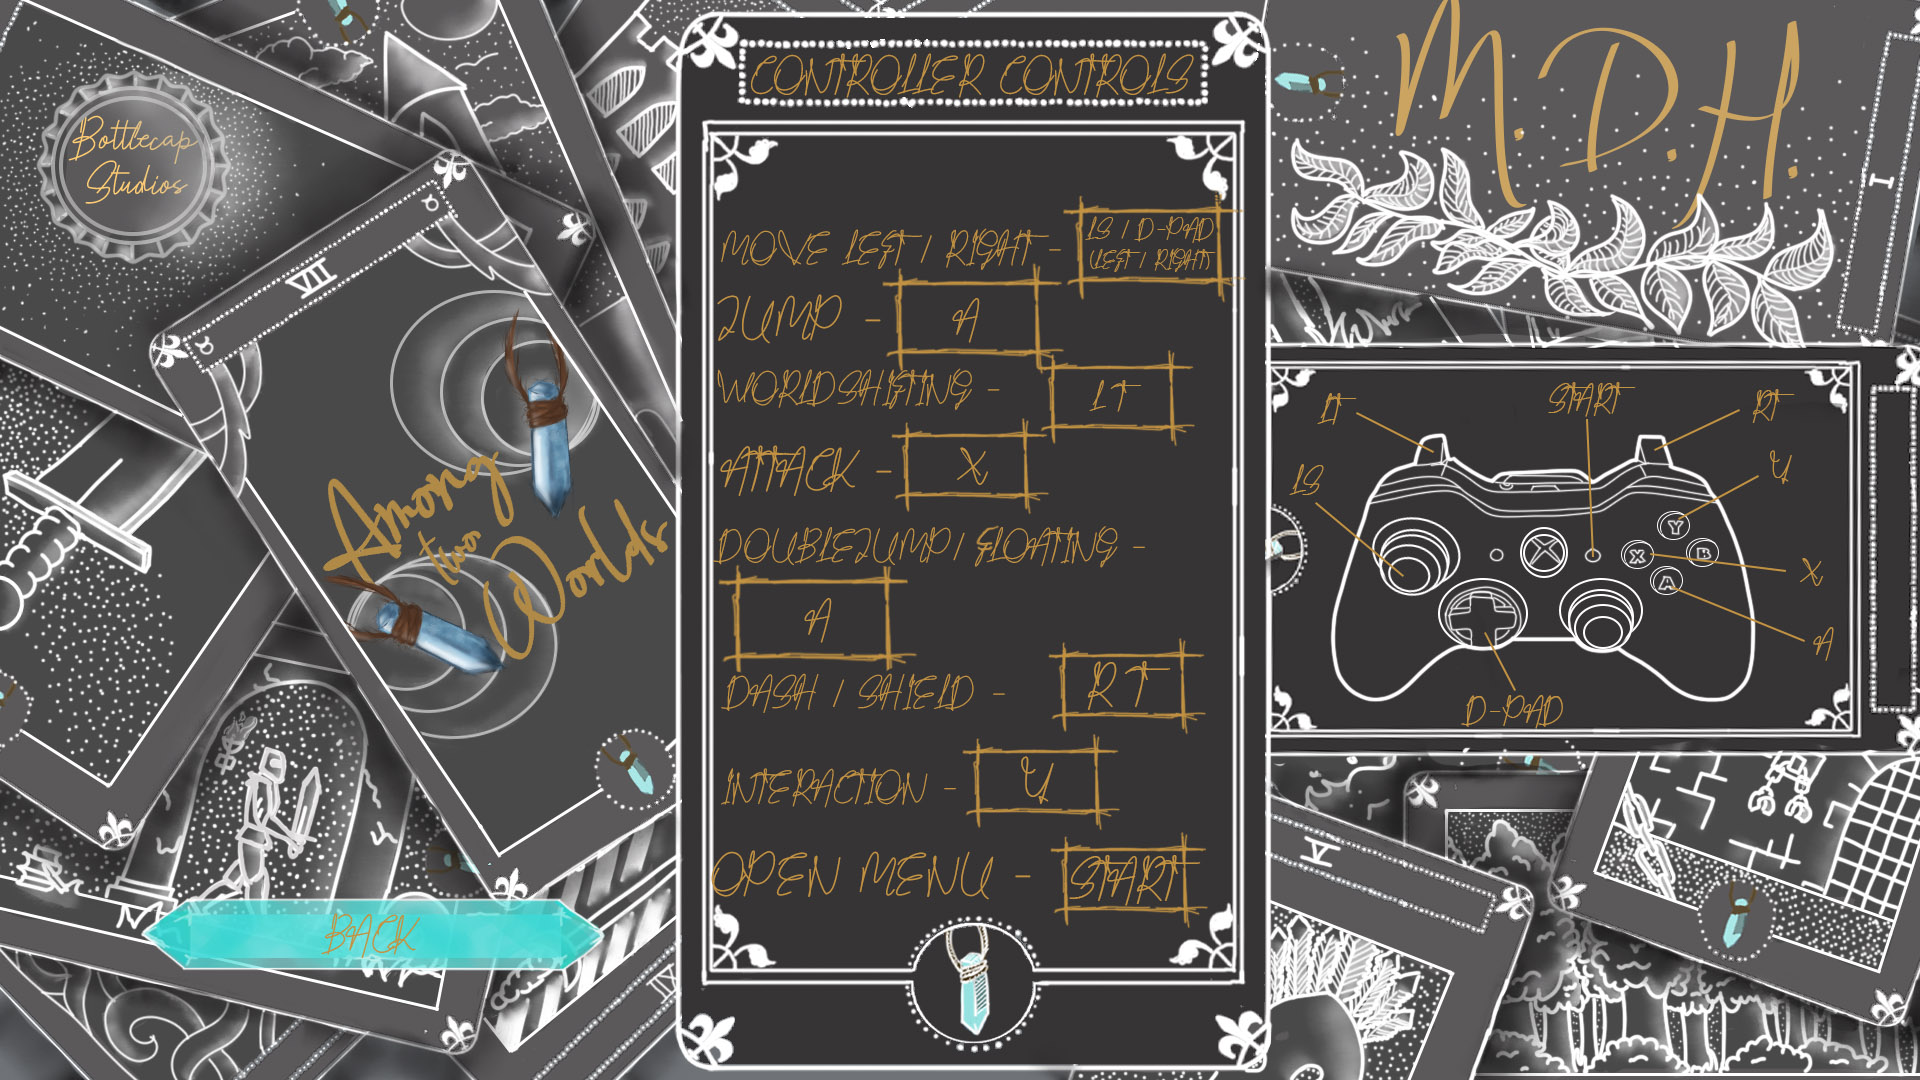 Bottlecap
Studios
VIII
Among
two
Worlds
BACK
CONTROLLER CONTROLS
MOVE LEFT / RIGHT - LS / D-PAD
(LEFT / RIGHT)
JUMP - A
WORLDSHIFTING - LT
ATTACK - X
DOUBLEJUMP / FLOATING -
A
DASH / SHIELD - RT
INTERACTION - Y
OPEN MENU - START
M.D.H.
I
LT
START
RT
LS
Y
Y
X
B
A
X
A
D-PAD
V